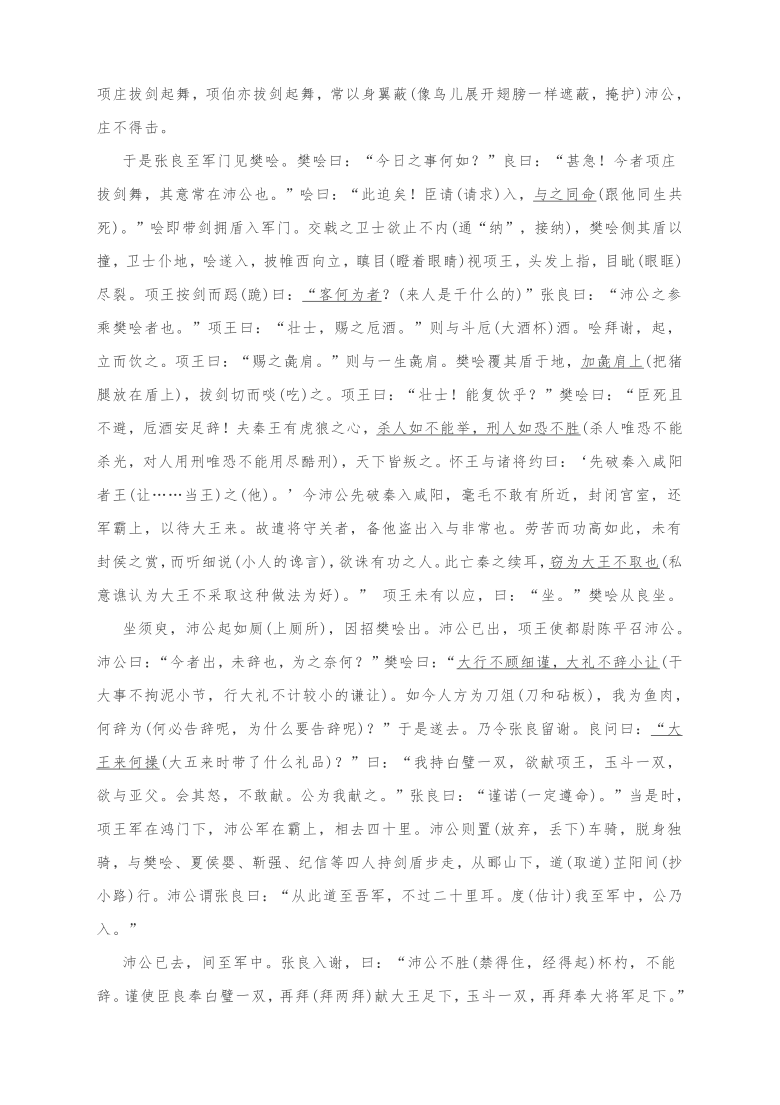 项庄拔剑起舞，项伯亦拔剑起舞，常以身翼蔽(像鸟儿展开翅膀一样遮蔽，掩护)沛公，
庄不得击。
于是张良至军门见樊哙。樊哙曰：“今日之事何如？”良曰：“甚急！今者项庄
拔剑舞，其意常在沛公也。”哙曰：“此迫矣！臣请(请求)入，与之同命(跟他同生共
死)。”哙即带剑拥盾入军门。交戟之卫士欲止不内(通“纳”，接纳)，樊哙侧其盾以
撞，卫士仆地，哙遂入，披帷西向立，瞋目(瞪着眼睛)视项王，头发上指，目眦(眼眶)
尽裂。项王按剑而跽(跪)曰：“客何为者？(来人是干什么的)”张良曰：“沛公之参
乘樊哙者也。”项王曰：“壮士，赐之卮酒。”则与斗卮(大酒杯)酒。哙拜谢，起，
立而饮之。项王曰：“赐之彘肩。”则与一生彘肩。樊哙覆其盾于地，加彘肩上(把猪
腿放在盾上)，拔剑切而啖(吃)之。项王曰：“壮士！能复饮乎？”樊哙曰：“臣死且
不避，卮酒安足辞！夫秦王有虎狼之心，杀人如不能举，刑人如恐不胜(杀人唯恐不能
杀光，对人用刑唯恐不能用尽酷刑)，天下皆叛之。怀王与诸将约曰：‘先破秦入咸阳
者王(让……当王)之(他)。’今沛公先破秦入咸阳，毫毛不敢有所近，封闭宫室，还
军霸上，以待大王来。故遣将守关者，备他盗出入与非常也。劳苦而功高如此，未有
封侯之赏，而听细说(小人的谗言)，欲诛有功之人。此亡秦之续耳，窃为大王不取也(私
意谯认为大王不采取这种做法为好)。” 项王未有以应，曰：“坐。”樊哙从良坐。
坐须臾，沛公起如厕(上厕所)，因招樊哙出。沛公已出，项王使都尉陈平召沛公。
沛公曰：“今者出，未辞也，为之奈何？”樊哙曰：“大行不顾细谨，大礼不辞小让(干
大事不拘泥小节，行大礼不计较小的谦让)。如今人方为刀俎(刀和砧板)，我为鱼肉，
何辞为(何必告辞呢，为什么要告辞呢)？”于是遂去。乃令张良留谢。良问曰：“大
王来何操(大五来时带了什么礼品)？”曰：“我持白璧一双，欲献项王，玉斗一双，
欲与亚父。会其怒，不敢献。公为我献之。”张良曰：“谨诺(一定遵命)。”当是时，
项王军在鸿门下，沛公军在霸上，相去四十里。沛公则置(放弃，丢下)车骑，脱身独
骑，与樊哙、夏侯婴、靳强、纪信等四人持剑盾步走，从郦山下，道(取道)芷阳间(抄
小路)行。沛公谓张良曰：“从此道至吾军，不过二十里耳。度(估计)我至军中，公乃
入。”
沛公已去，间至军中。张良入谢，曰：“沛公不胜(禁得住，经得起)杯杓，不能
辞。谨使臣良奉白璧一双，再拜(拜两拜)献大王足下，玉斗一双，再拜奉大将军足下。”